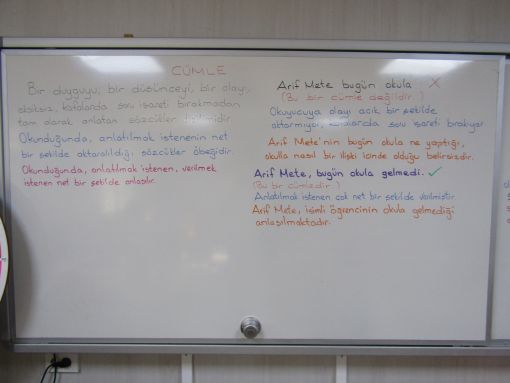 CÜMLE
Bir duyguyu, bir düşünceyi, bir olayı,
eksiksiz, kafalarda soru işareti bırakmadan
tam olarak anlatan sözcükler
Okunduğunda, anlatılmak istenenin net
bir şekilde aktarıldığı, sözcükler öbeğidir.
Okunduğunda, anlatılmak istenen, verilmek
istenen net bir şekilde anlaşılır.
Arif Mete bugün okula ✗
(Bu bir cümle değildir.)
Okuyucuya olayı açık bir şekilde
aktarmıyor, soru işareti bırakıyor.
Arif Mete'nin bugün okula ne yaptığı,
okulla nasıl bir ilişki içinde olduğu belirsizdir.
Arif Mete, bugün okula gelmedi. ✓
(Bu bir cümledir.)
Anlatılmak istenen çok net bir şekilde verilmiştir.
Arif Mete, isimli öğrencinin okula gelmediği
anlaşılmaktadır.